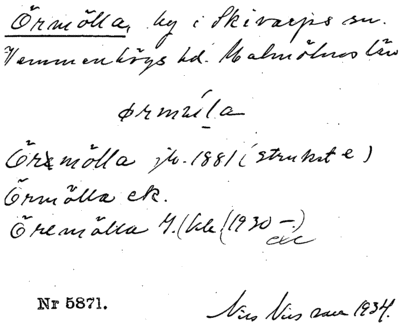 Örmölla, by i Skivarps sn.
Vemmenhögs hd. Malmöhus län
ørmųla
Örmölla jb. 1881 (struket e)
Örmölla ek.
Öremölla (1930–)
Nr 5871.
Nils Nilsson 1934.